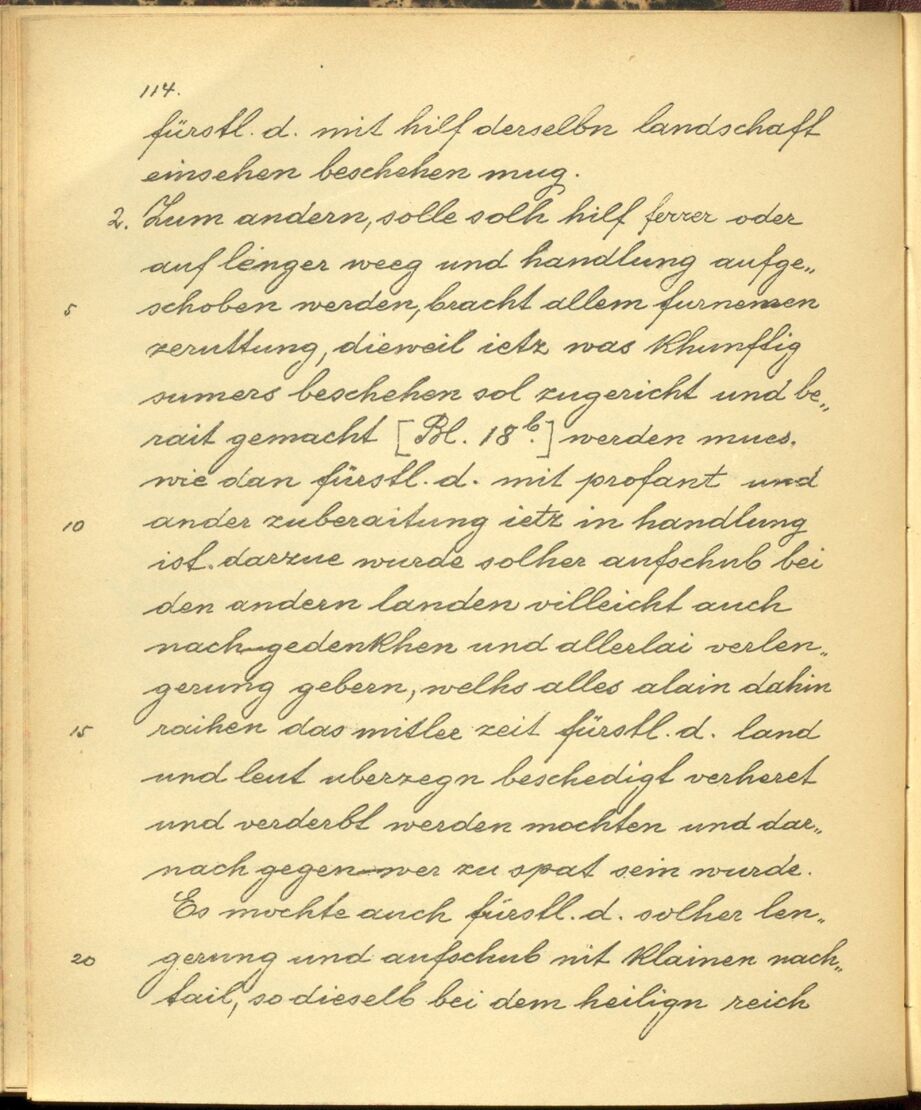 114.
fürstl. d. mit hilf derselbn landschaft
einsehen beschehen mug.
2. Zum andern, solle solh hilf ferrer oder
auf lenger weeg und handlung aufge„
5 schoben werden, bracht allem furnemen
zeruttung, dieweil ietz was khunftig
sumers beschehen sol zugericht und be„
rait gemacht [Bl. 18b.] werden mues.
wie dan fürstl. d. mit profant und
10 ander zuberaitung ietz in handlung
ist. darzue wurde solher aufschub bei
den andern landen villeicht auch
nachgedenkhen und allerlai verlen„
gerung gebern, welhs alles alain dahin
15 raihen das mitler zeit fürstl. d. land
und leut uberzegn beschedigt verheret
und verderbt werden mochten und dar„
nach gegenwer zu spat sein wurde.
Es mochte auch fürstl. d. solher len„
20 gerung und aufschub nit klainen nach„
tail, so dieselb bei dem heilign reich